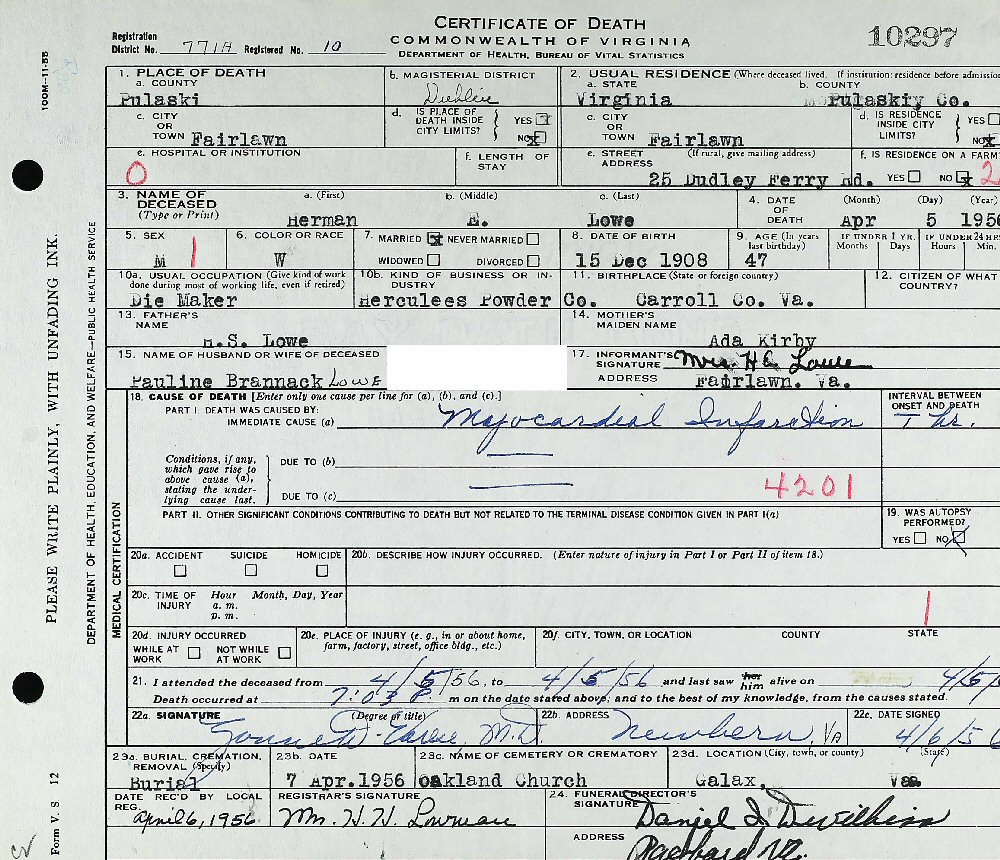 CERTIFICATE OF DEATH
COMMONWEALTH OF VIRGINIA
DEPARTMENT OF HEALTH, BUREAU OF VITAL STATISTICS
Registration District No. 771A Registered No. 10
10297
100M—11-55
1. PLACE OF DEATH
a. COUNTY
Pulaski
b. MAGISTERIAL DISTRICT
2. USUAL RESIDENCE (Where deceased lived. If institution: residence before admissio
a. STATE
Virginia
b. COUNTY
Pulaskiy Co.
c. CITY OR TOWN Fairlawn
d. IS PLACE OF DEATH INSIDE CITY LIMITS? YES NO
c. CITY OR TOWN Fairlawn
d. IS RESIDENCE INSIDE CITY LIMITS? YES NO
e. HOSPITAL OR INSTITUTION
0
f. LENGTH OF STAY
e. STREET ADDRESS (If rural, give mailing address)
25 Dudley Ferry Rd.
f. IS RESIDENCE ON A FARM
YES NO 2
3. NAME OF DECEASED (Type or Print)
a. (First) b. (Middle) c. (Last)
Herman E. Lowe
4. DATE OF DEATH (Month) (Day) (Year)
Apr 5 1956
5. SEX
M 1
6. COLOR OR RACE
W
7. MARRIED NEVER MARRIED
WIDOWED DIVORCED
8. DATE OF BIRTH
15 Dec 1908
9. AGE (In years last birthday)
47
IF UNDER 1 YR. Months Days
IF UNDER 24 HRS Hours Min.
10a. USUAL OCCUPATION (Give kind of work done during most of working life, even if retired)
Die Maker
10b. KIND OF BUSINESS OR INDUSTRY
Herculees Powder Co.
11. BIRTHPLACE (State or foreign country)
Carroll Co. Va.
12. CITIZEN OF WHAT COUNTRY?
13. FATHER'S NAME
H.S. Lowe
14. MOTHER'S MAIDEN NAME
Ada Kirby
15. NAME OF HUSBAND OR WIFE OF DECEASED
Pauline Brannack Lowe
17. INFORMANT'S SIGNATURE Mrs. H E. Lowe
ADDRESS Fairlawn. Va.
MEDICAL CERTIFICATION
18. CAUSE OF DEATH [Enter only one cause per line for (a), (b), and (c).]
PART I. DEATH WAS CAUSED BY:
IMMEDIATE CAUSE (a) Myocardial Infarction
INTERVAL BETWEEN ONSET AND DEATH
1 hr.
Conditions, if any, which gave rise to above cause (a), stating the underlying cause last.
DUE TO (b)
DUE TO (c)
4201
PART II. OTHER SIGNIFICANT CONDITIONS CONTRIBUTING TO DEATH BUT NOT RELATED TO THE TERMINAL DISEASE CONDITION GIVEN IN PART I(a)
19. WAS AUTOPSY PERFORMED?
YES NO
20a. ACCIDENT SUICIDE HOMICIDE
20b. DESCRIBE HOW INJURY OCCURRED. (Enter nature of injury in Part I or Part II of item 18.)
20c. TIME OF INJURY Hour a. m. p. m. Month, Day, Year
1
20d. INJURY OCCURRED
WHILE AT WORK NOT WHILE AT WORK
20e. PLACE OF INJURY (e. g., in or about home, farm, factory, street, office bldg., etc.)
20f. CITY, TOWN, OR LOCATION COUNTY STATE
21. I attended the deceased from 4/5/56, to 4/5/56 and last saw her him alive on 4/5/5
Death occurred at 7:03 P m on the date stated above, and to the best of my knowledge, from the causes stated.
22a. SIGNATURE (Degree or title)
M.D.
22b. ADDRESS
Newbern, VA
22c. DATE SIGNED
4/6/56
23a. BURIAL, CREMATION, REMOVAL (Specify)
Burial
23b. DATE
7 Apr.1956
23c. NAME OF CEMETERY OR CREMATORY
oakland Church
23d. LOCATION (City, town, or county) (State)
Galax, Va.
DATE REC'D BY LOCAL REG.
April 6, 1956
REGISTRAR'S SIGNATURE
Mrs. H. H. Lowman
24. FUNERAL DIRECTOR'S SIGNATURE
Daniel
ADDRESS
Va.
PLEASE WRITE PLAINLY, WITH UNFADING INK.
DEPARTMENT OF HEALTH, EDUCATION, AND WELFARE—PUBLIC HEALTH SERVICE
Form V. S 12